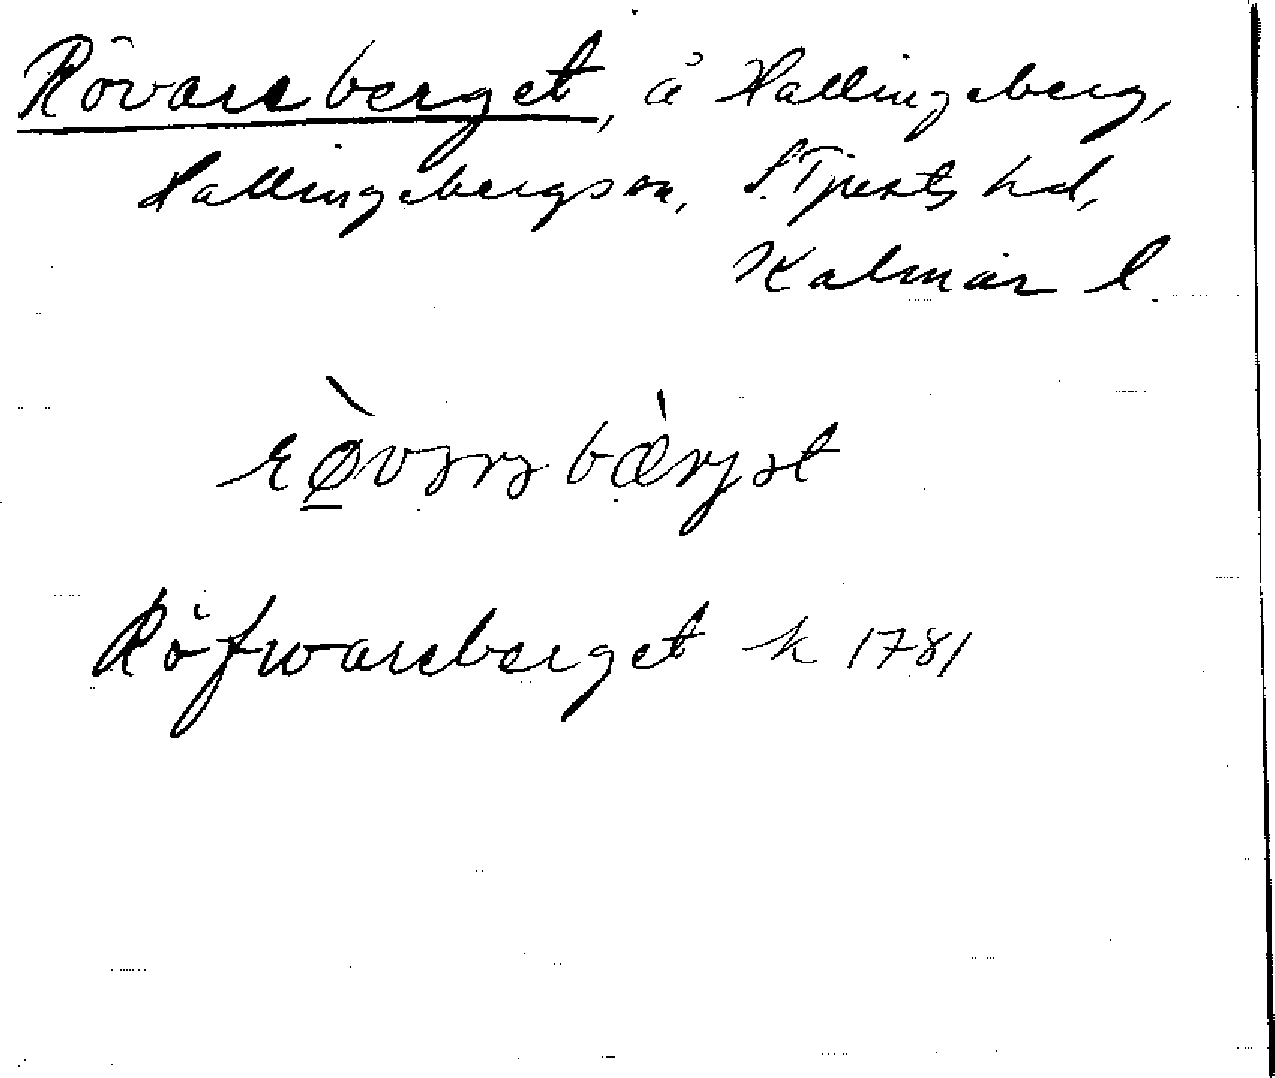 Rövareberget, å Hallingeberg,
Hallingebergs sn, S. Tjusts hd,
Kalmar l.
Röfwareberget k 1781